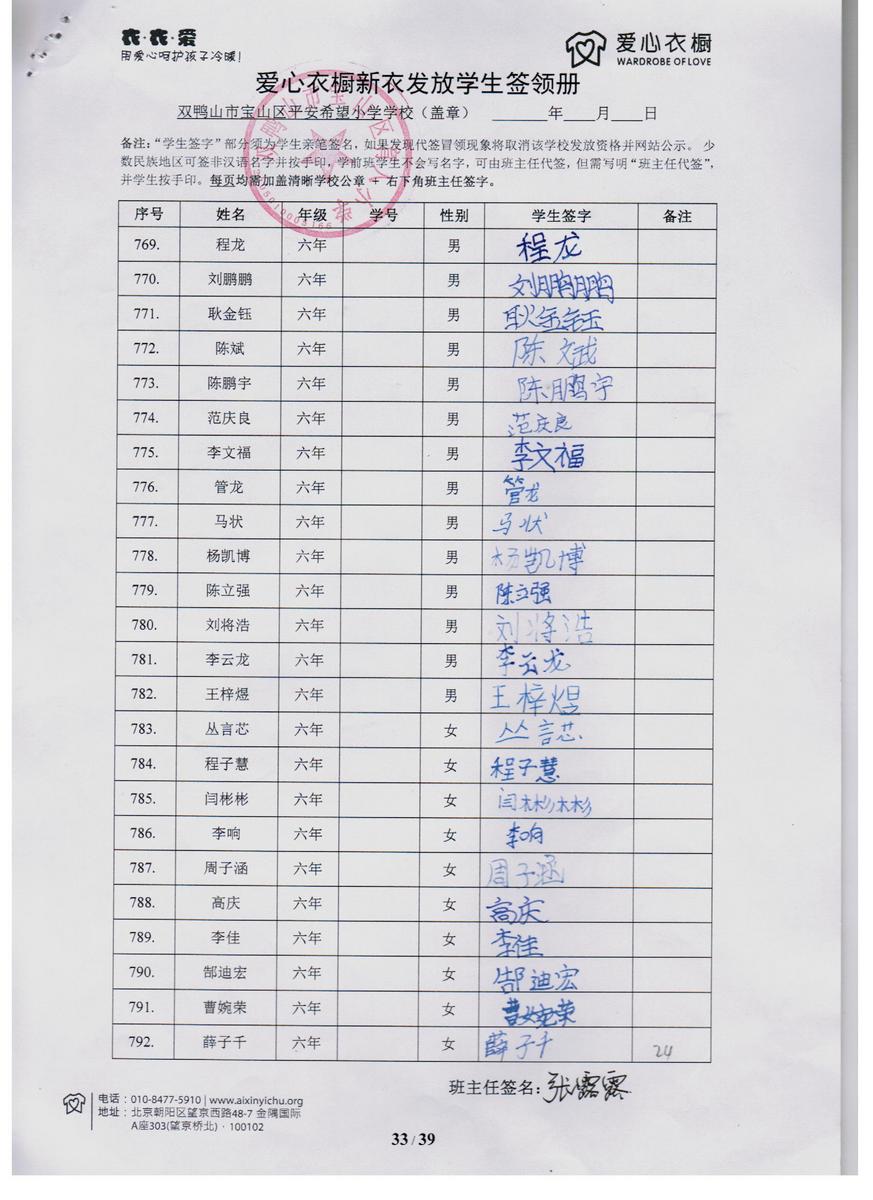 衣·衣·爱
用爱心呵护孩子冷暖!
爱心衣橱
WARDROBE OF LOVE
爱心衣橱新衣发放学生签领册
双鸭山市宝山区平安希望小学学校（盖章） ______年____月____日
备注：“学生签字”部分须为学生亲笔签名，如果发现代签冒领现象将取消该学校发放资格并网站公示。 少
数民族地区可签非汉语名字并按手印，学前班学生不会写名字，可由班主任代签，但需写明“班主任代签”，
并学生按手印。每页均需加盖清晰学校公章 + 右下角班主任签字。
序号 姓名 年级 学号 性别 学生签字 备注
769. 程龙 六年 男 程龙
770. 刘鹏鹏 六年 男 刘鹏鹏
771. 耿金钰 六年 男 耿金钰
772. 陈斌 六年 男 陈斌
773. 陈鹏宇 六年 男 陈鹏宇
774. 范庆良 六年 男 范庆良
775. 李文福 六年 男 李文福
776. 管龙 六年 男 管龙
777. 马状 六年 男 马状
778. 杨凯博 六年 男 杨凯博
779. 陈立强 六年 男 陈立强
780. 刘将浩 六年 男 刘将浩
781. 李云龙 六年 男 李云龙
782. 王梓煜 六年 男 王梓煜
783. 丛言芯 六年 女 丛言芯
784. 程子慧 六年 女 程子慧
785. 闫彬彬 六年 女 闫彬彬
786. 李响 六年 女 李响
787. 周子涵 六年 女 周子涵
788. 高庆 六年 女 高庆
789. 李佳 六年 女 李佳
790. 郜迪宏 六年 女 郜迪宏
791. 曹婉荣 六年 女 曹婉荣
792. 薛子千 六年 女 薛子千 24
班主任签名：张露露
电话：010-8477-5910 | www.aixinyichu.org
地址：北京朝阳区望京西路48-7 金隅国际
A座303(望京桥北)·100102
33 / 39